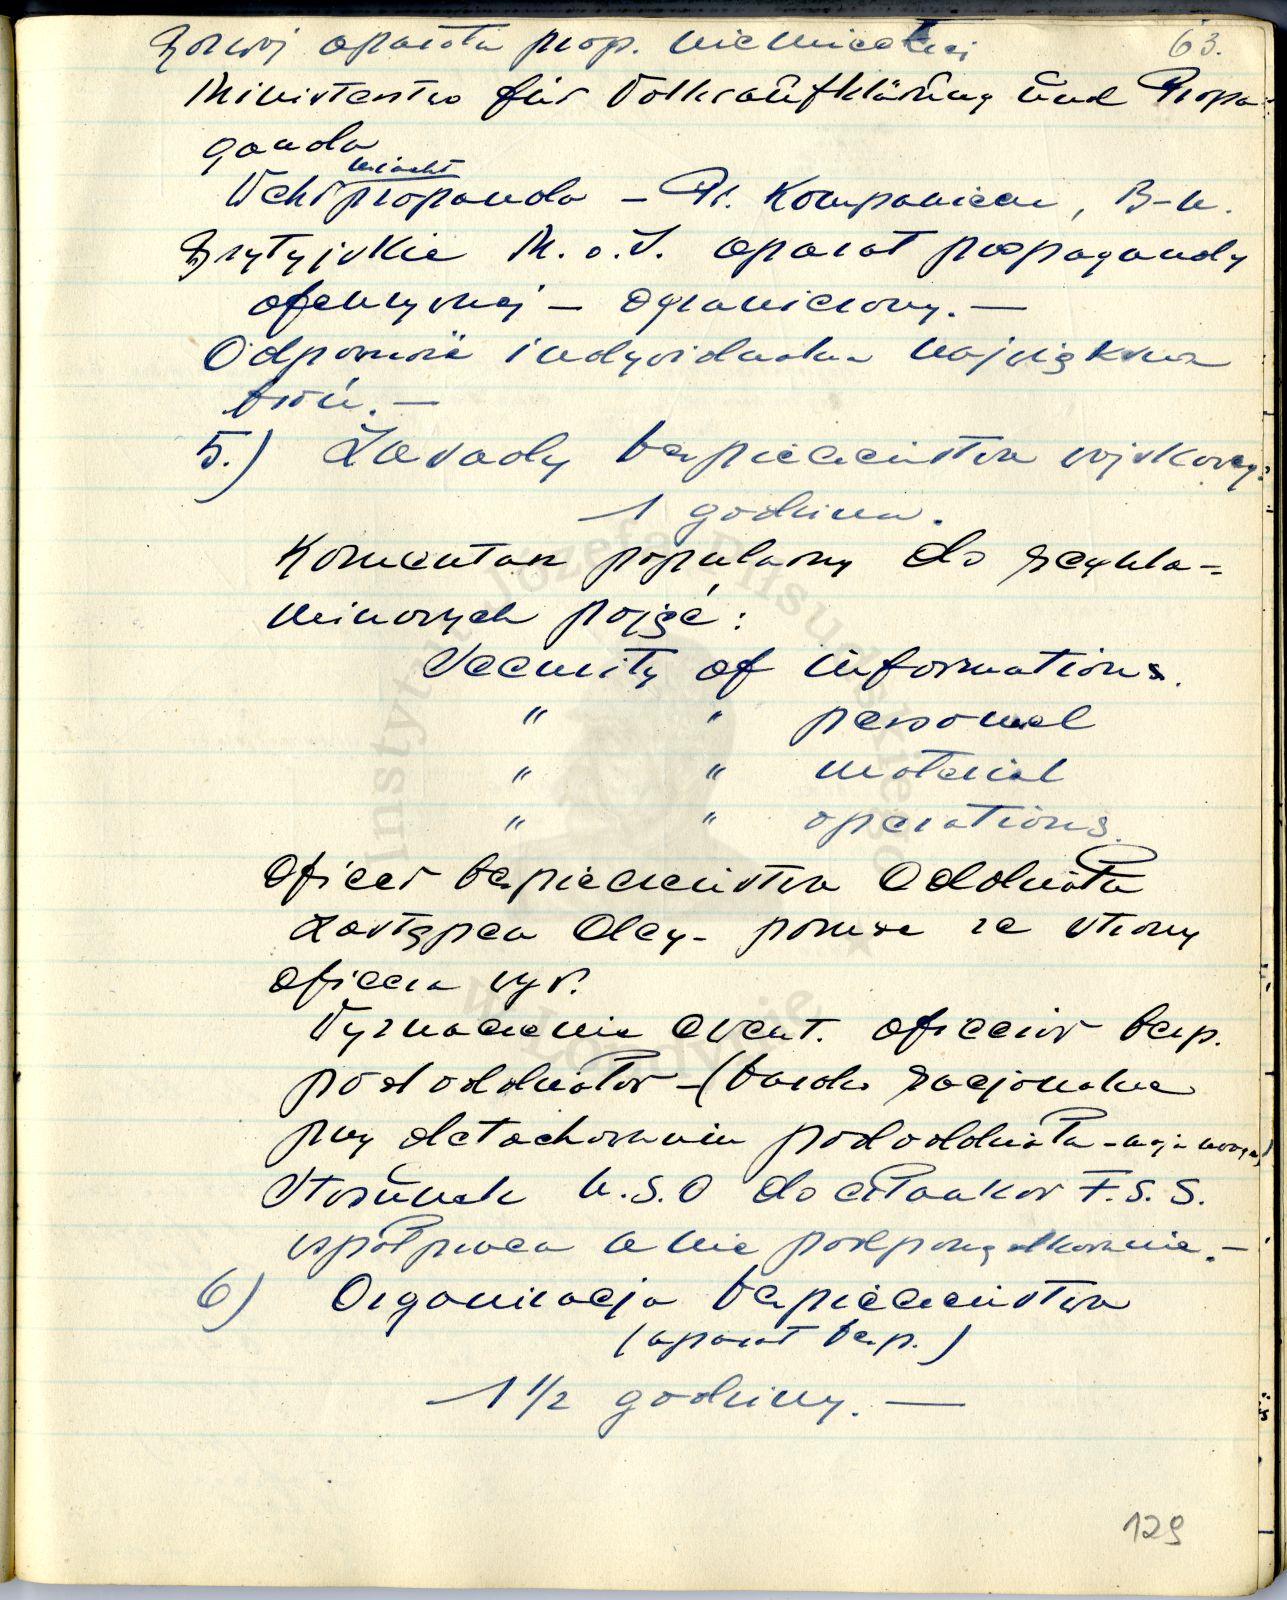 Rozwój aparatu prop. niemieckiej 63.
Ministerstwo für Volksaufklärung und Propa-
ganda
macht
Wehrpropanda – Pr. Kompanieen, B-n.
Brytyjskie M.o.I. aparat propagandy
ofenzywnej – ograniczony. –
Odporność indywidualna największa
broń. –
5.) Zasady bezpieczeństwa wojskowego:
1 godzina.
Komentarz popularny do regula-
minowych pojęć:
Security of informations.
" " personel
" " material
" " operations.
Oficer bezpieczeństwa Oddziału
Zastępca Dcy – pomoc ze strony
oficera wyw.
Wyznaczenie ewent. oficerów bezp.
pododdziałów – (bardzo racjonalne
przy detachowaniu pododdziału –
Stosunek U.S.O do członków F.S.S.
współpraca a nie podporządkowanie. –
6) Organizacja bezpieczeństwa
(aparat bezp.)
– 1 1/2 godziny. –
129
Instytut Józefa Piłsudskiego
w Londynie